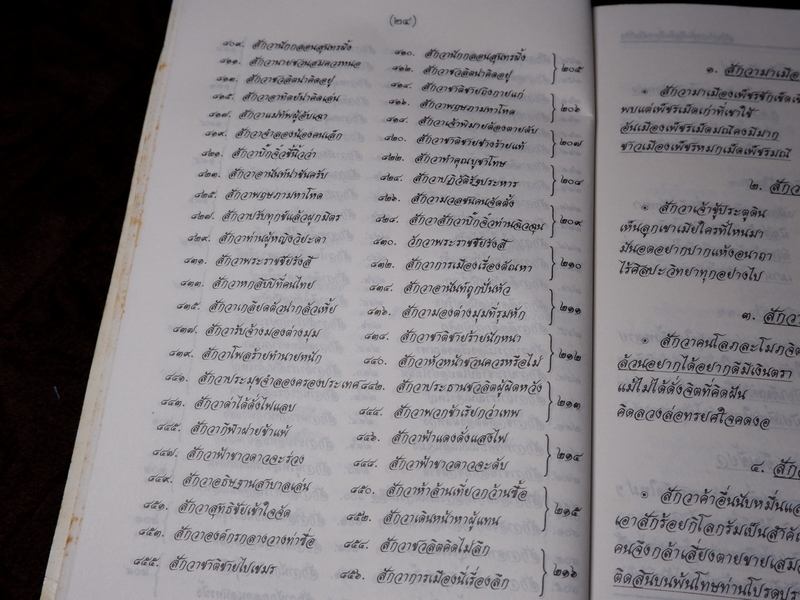 (๒๔)
๔๐๙. สักวานักกลอนสุนทรผึ้ง ๔๑๐. สักวานักกลอนสุนทรผึ้ง ๒๐๕
๔๑๑. สักวานายชวนสมควรทนอ ๔๑๒. สักวาชวลิตน่าคิดอยู่
๔๑๓. สักวาชวลิตน่าคิดอยู่ ๔๑๔. สักวาชาติชายถึงกายแก่ ๒๐๖
๔๑๕. สักวาอาทิตย์น่าคิดเล่น ๔๑๖. สักวาพฤษภามหาโหด
๔๑๗. สักวาแม่ทัพผู้ลับเฉา ๔๑๘. สักวาเจ้าพิมายต้องตายดับ ๒๐๗
๔๑๙. สักวาจำลองน้องคนเล็ก ๔๒๐. สักวาชาติชายช่างร้ายแท้
๔๒๑. สักวาบิ๊กจิ๋วชี้นิ้วว่า ๔๒๒. สักวาทำคุณบูชาโทษ ๒๐๘
๔๒๓. สักวาอานันท์น่าขันครับ ๔๒๔. สักวาปฏิวัติรัฐประหาร
๔๒๕. สักวาพฤษภามหาโหด ๔๒๖. สักวามวลชนคนจัดตั้ง ๒๐๙
๔๒๗. สักวาปรับทุกข์แล้วผูกมิตร ๔๒๘. สักวาสักวาบิ๊กจิ๋วท่านฉิวฉุน
๔๒๙. สักวาท่านผู้หญิงวิยะดา ๔๓๐. วักวาพระราชชัยรังสี ๒๑๐
๔๓๑. สักวาพระราชชัยรังสี ๔๓๒. สักวาการเมืองเรื่องตัณหา
๔๓๓. สักวาหกสิบปีที่คนไทย ๔๓๔. สักวาอานันท์ถูกปั่นหัว ๒๑๑
๔๓๕. สักวาเกลียดตัวน่ากลัวเหี้ย ๔๓๖. สักวามองต่างมุมที่รุมหัก
๔๓๗. สักวารับจ้างมองต่างมุม ๔๓๘. สักวาชาติชายร้ายนักหนา ๒๑๒
๔๓๙. สักวาโพลร้ายทำนายหนัก ๔๔๐. สักวาหัวหน้าชวนควรหรือไม่
๔๔๑. สักวาประมุขจำลองครองประเทศ ๔๔๒. สักวาประธานชวลิตผู้ผิดหวัง ๒๑๓
๔๔๓. สักวาดำได้ดั่งไฟแลบ ๔๔๔. สักวาพวกข้าเรียกว่าเทพ
๔๔๕. สักวากีฬาฝ่ายข้าแพ้ ๔๔๖. สักวาฟ้าแดงดั่งแสงไฟ ๒๑๔
๔๔๗. สักวาฟ้าขาวดาวจะร่วง ๔๔๘. สักวาฟ้าขาวดาวจะดับ
๔๔๙. สักวาอธิษฐานสาบาลเล่น ๔๕๐. สักวาห้าล้านเที่ยวกว้านซื้อ ๒๑๕
๔๕๑. สักวาสุทธิชัยเข้าใจจัด ๔๕๒. สักวาเดินหน้าหาผู้แทน
๔๕๓. สักวาองค์กรกลางวางท่าซื่อ ๔๕๔. สักวาชวลิตคิดไม่ลึก ๒๑๖
๔๕๕. สักวาชาติชายไปเขมร ๔๕๖. สักวาการเมืองนี่เรื่องลึก
๑. สักวามาเมือ
๑ สักวามาเมืองเพชรชักเข็ดเข็
พบแต่เพชรเม็ดเก่าที่เขาใช้
อันเมืองเพชรเม็ดมณีคงมีมาก
ชาวเมืองเพชรหมกเม็ดเพชรมณี
๒. สักวา
๑ สักวาเจ้าชู้ประตูดิน
เห็นลูกเขาเมียใครที่ไหนมา
มันอดอยากปากแห้งอนาถา
ไร้ศิลปะวิทยาทุกอย่างไป
๓. สักวา
๑ สักวาคนโลภละโมภจิต
ล้วนอยากได้อยากดีมีเงินตรา
แม้ไม่ได้ดั่งจิตที่คิดฝัน
คิดลวงล่อทรยศใจคดงอ
๔. สัก
๑ สักวาค้าอื่นนับหมื่นแส
เอาสักร้อยกิโลกรัมเป็นสำคั
คนจึงกล้าเสี่ยงตายขายเสม
ติดสินบนพ้นโทษท่านโปรดปร